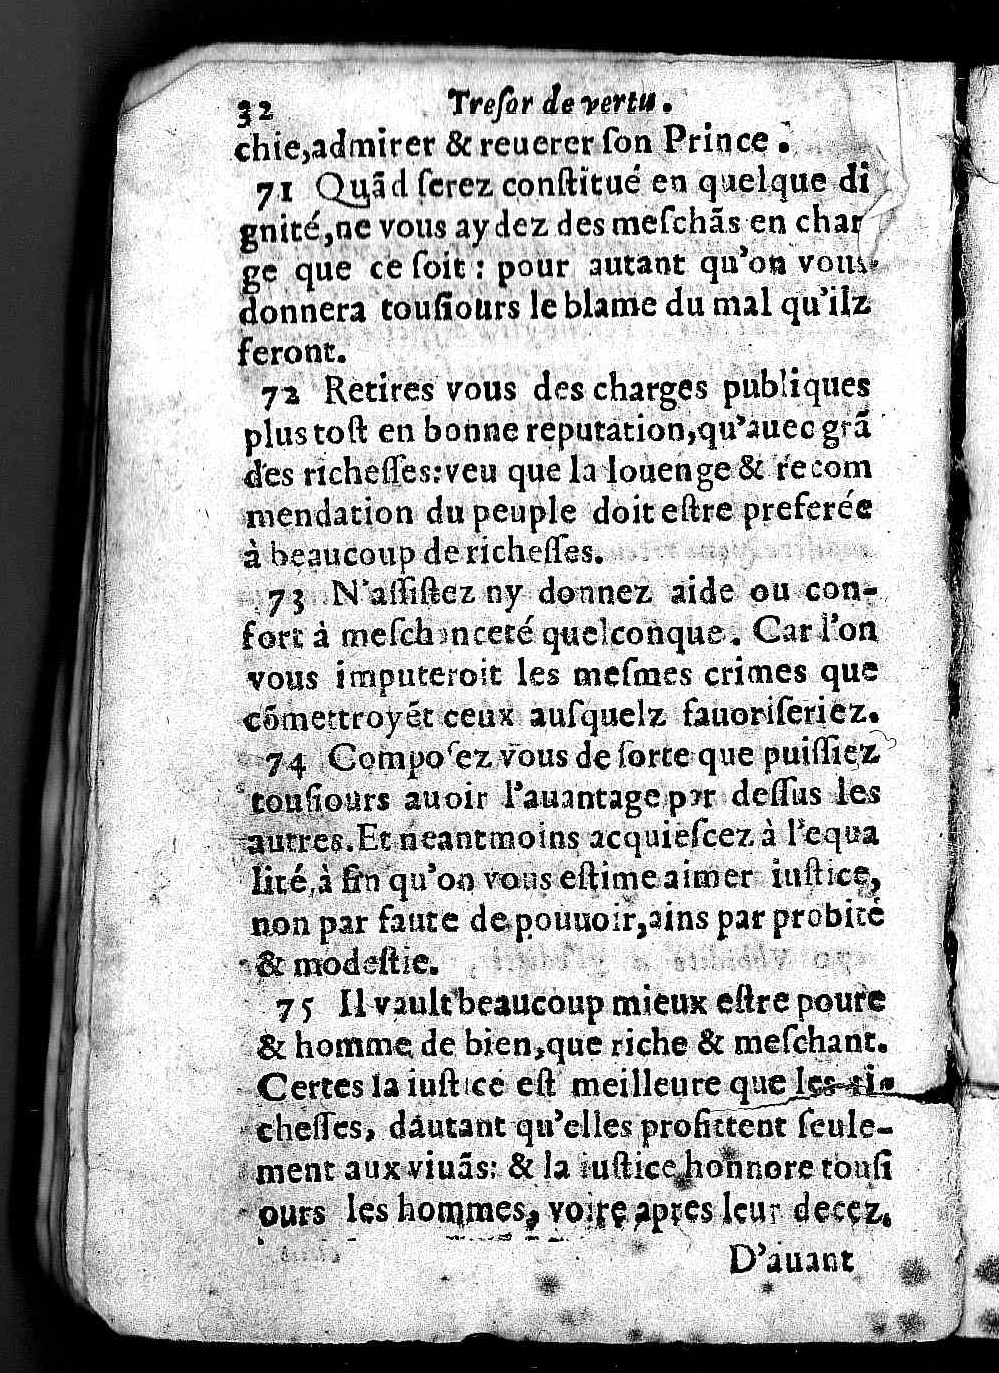 32 Treſor de vertu.
chie,admirer & reuerer ſon Prince.
71 Quãd ſerez conſtitué en quelque di
gnité,ne vous aydez des meſchãs en char
ge que ce ſoit : pour autant qu'on vous
donnera touſiours le blame du mal qu'ilz
feront.
72 Retires vous des charges publiques
plus toſt en bonne reputation,qu'auec grã
des richeſſes:veu que la louenge & recom
mendation du peuple doit eſtre preferée
à beaucoup de richeſſes.
73 N'aſſiſtez ny donnez aide ou con-
fort à meſchanceté quelconque. Car l'on
vous imputeroit les meſmes crimes que
cõmettroyẽt ceux auſquelz fauoriſeriez.
74 Compoſez vous de ſorte que puiſſiez
touſiours auoir l'auantage par deſſus les
autres.Et neantmoins acquieſcez à l'equa
lité,à fin qu'on vous eſtime aimer iuſtice,
non par faute de pouuoir,ains par probité
& modeſtie.
75 Il vault beaucoup mieux eſtre poure
& homme de bien,que riche & meſchant.
Certes la iuſtice eſt meilleure que les ri-
cheſſes, dáutant qu'elles profittent ſeule-
ment aux viuãs: & la iuſtice honnore touſi
ours les hommes, voire apres leur decez.
D'auant